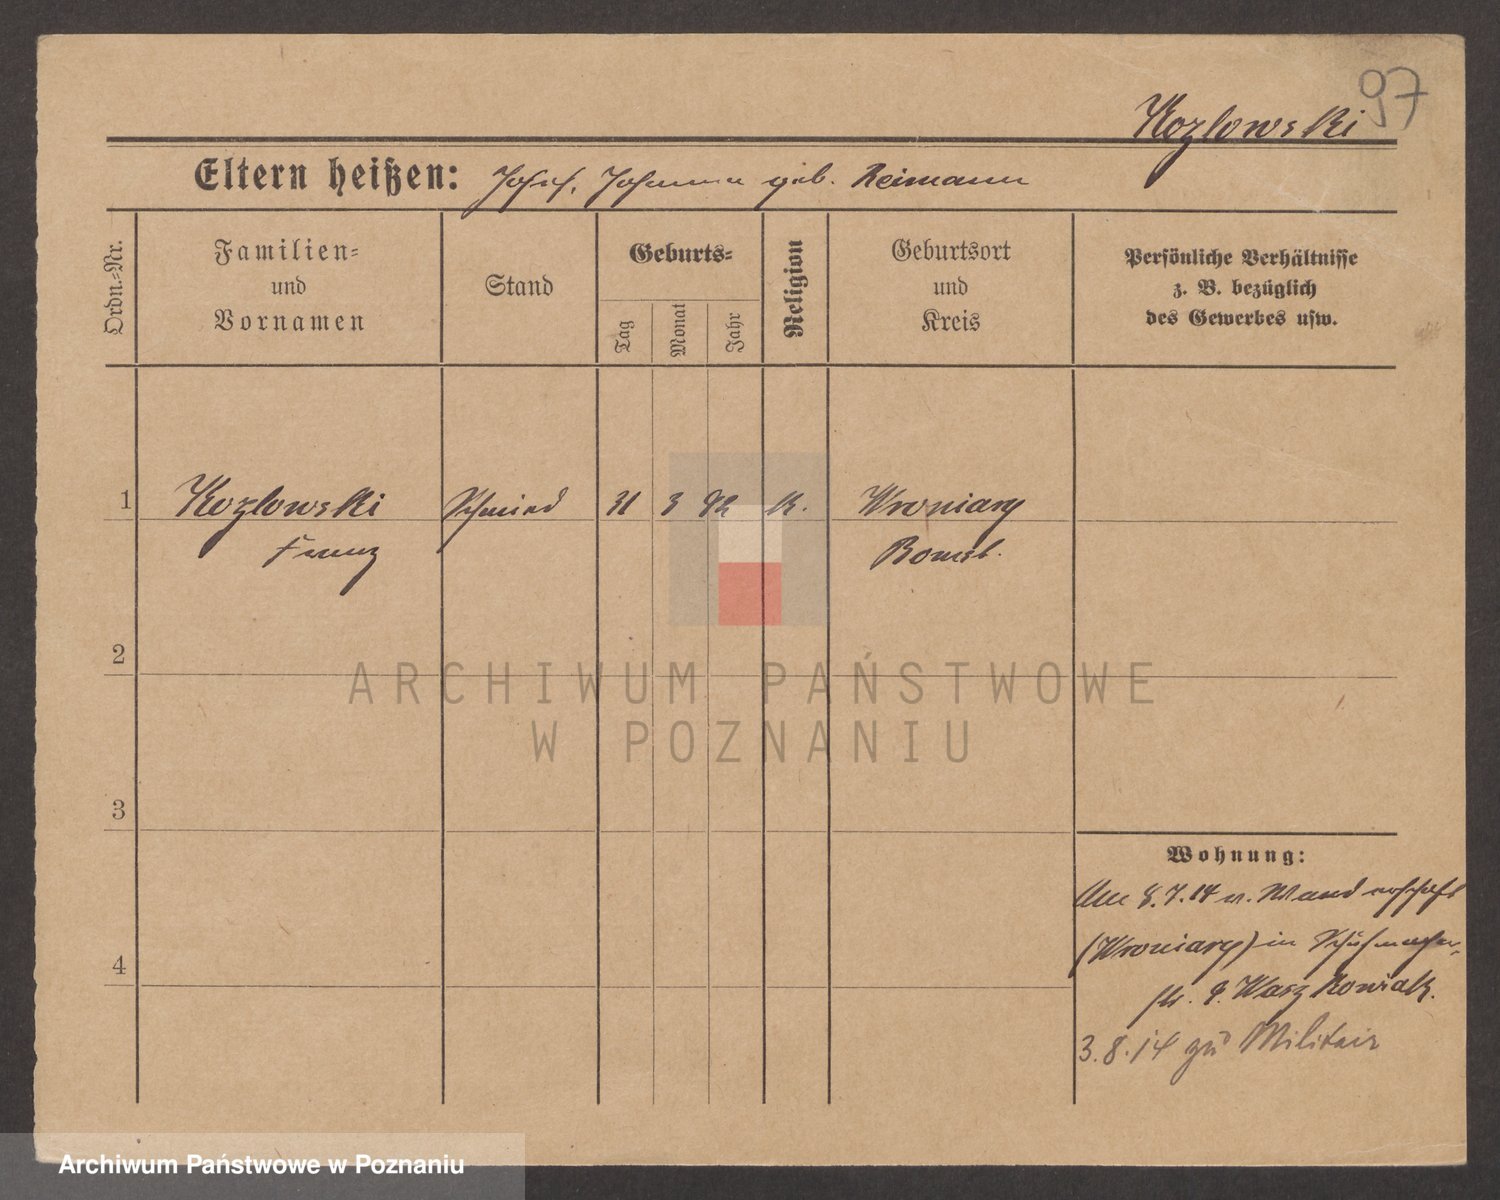 97
Kozlowski
Eltern heißen: Josef, Johanna geb. Reimann
Ordn.-Nr.
Familien-
und
Vornamen
Stand
Geburts-
Tag
Monat
Jahr
Religion
Geburtsort
und
Kreis
Persönliche Verhältnisse
z. B. bezüglich
des Gewerbes usw.
1 Kozlowski Schmied 31 3 82 k. Wroniary
Franz Bomst.
2
3
4
Wohnung:
Am 8.7.14 v. Wanderschaft
(Wroniary) in Schuhmacher-
str. 9. Waszkowiak.
3.8.14 zu Militair
ARCHIWUM PAŃSTWOWE
W POZNANIU
Archiwum Państwowe w Poznaniu